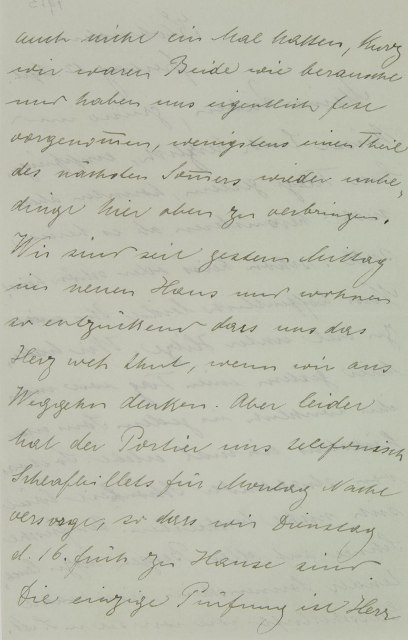 auch nicht ein Mal hatten, Kurz
wir waren Beide wie berauscht
und haben uns eigentlich fest
vorgenommen, wenigstens einen Theil
des nächsten Sommers wieder unbe-
dingt hier oben zu verbringen.
Wir sind seit gestern Mittag
im neuen Haus und wohnen
so entzückend dass uns das
Herz weh thut, wenn wir ans
Weggehn denken. Aber leider
hat der Portier uns telefonisch
Schlafbillets für Montag Nacht
versorgt, so dass wir Dienstag
d. 16. früh zu Hause sind
Die einzige Prüfung ist Herr